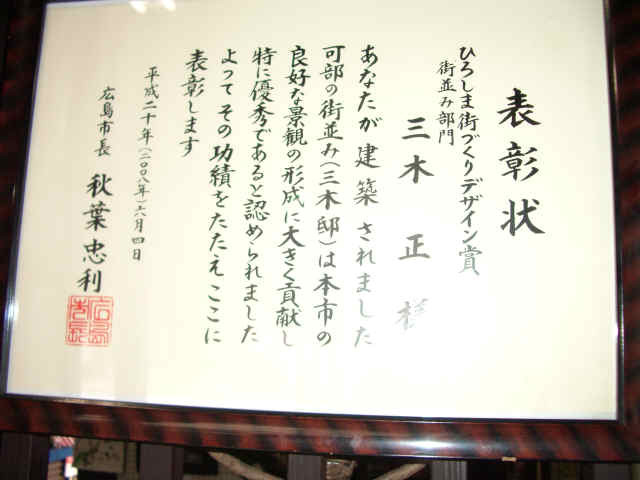 表彰状
ひろしま街づくりデザイン賞
街並み部門
三木 正 様
あなたが建築されました
可部の街並み(三木邸)は本市の
良好な景観の形成に大きく貢献し
特に優秀であると認められました
よって その功績をたたえ ここに
表彰します
平成二十年(二〇〇八年)六月四日
広島市長 秋葉忠利
広島市長